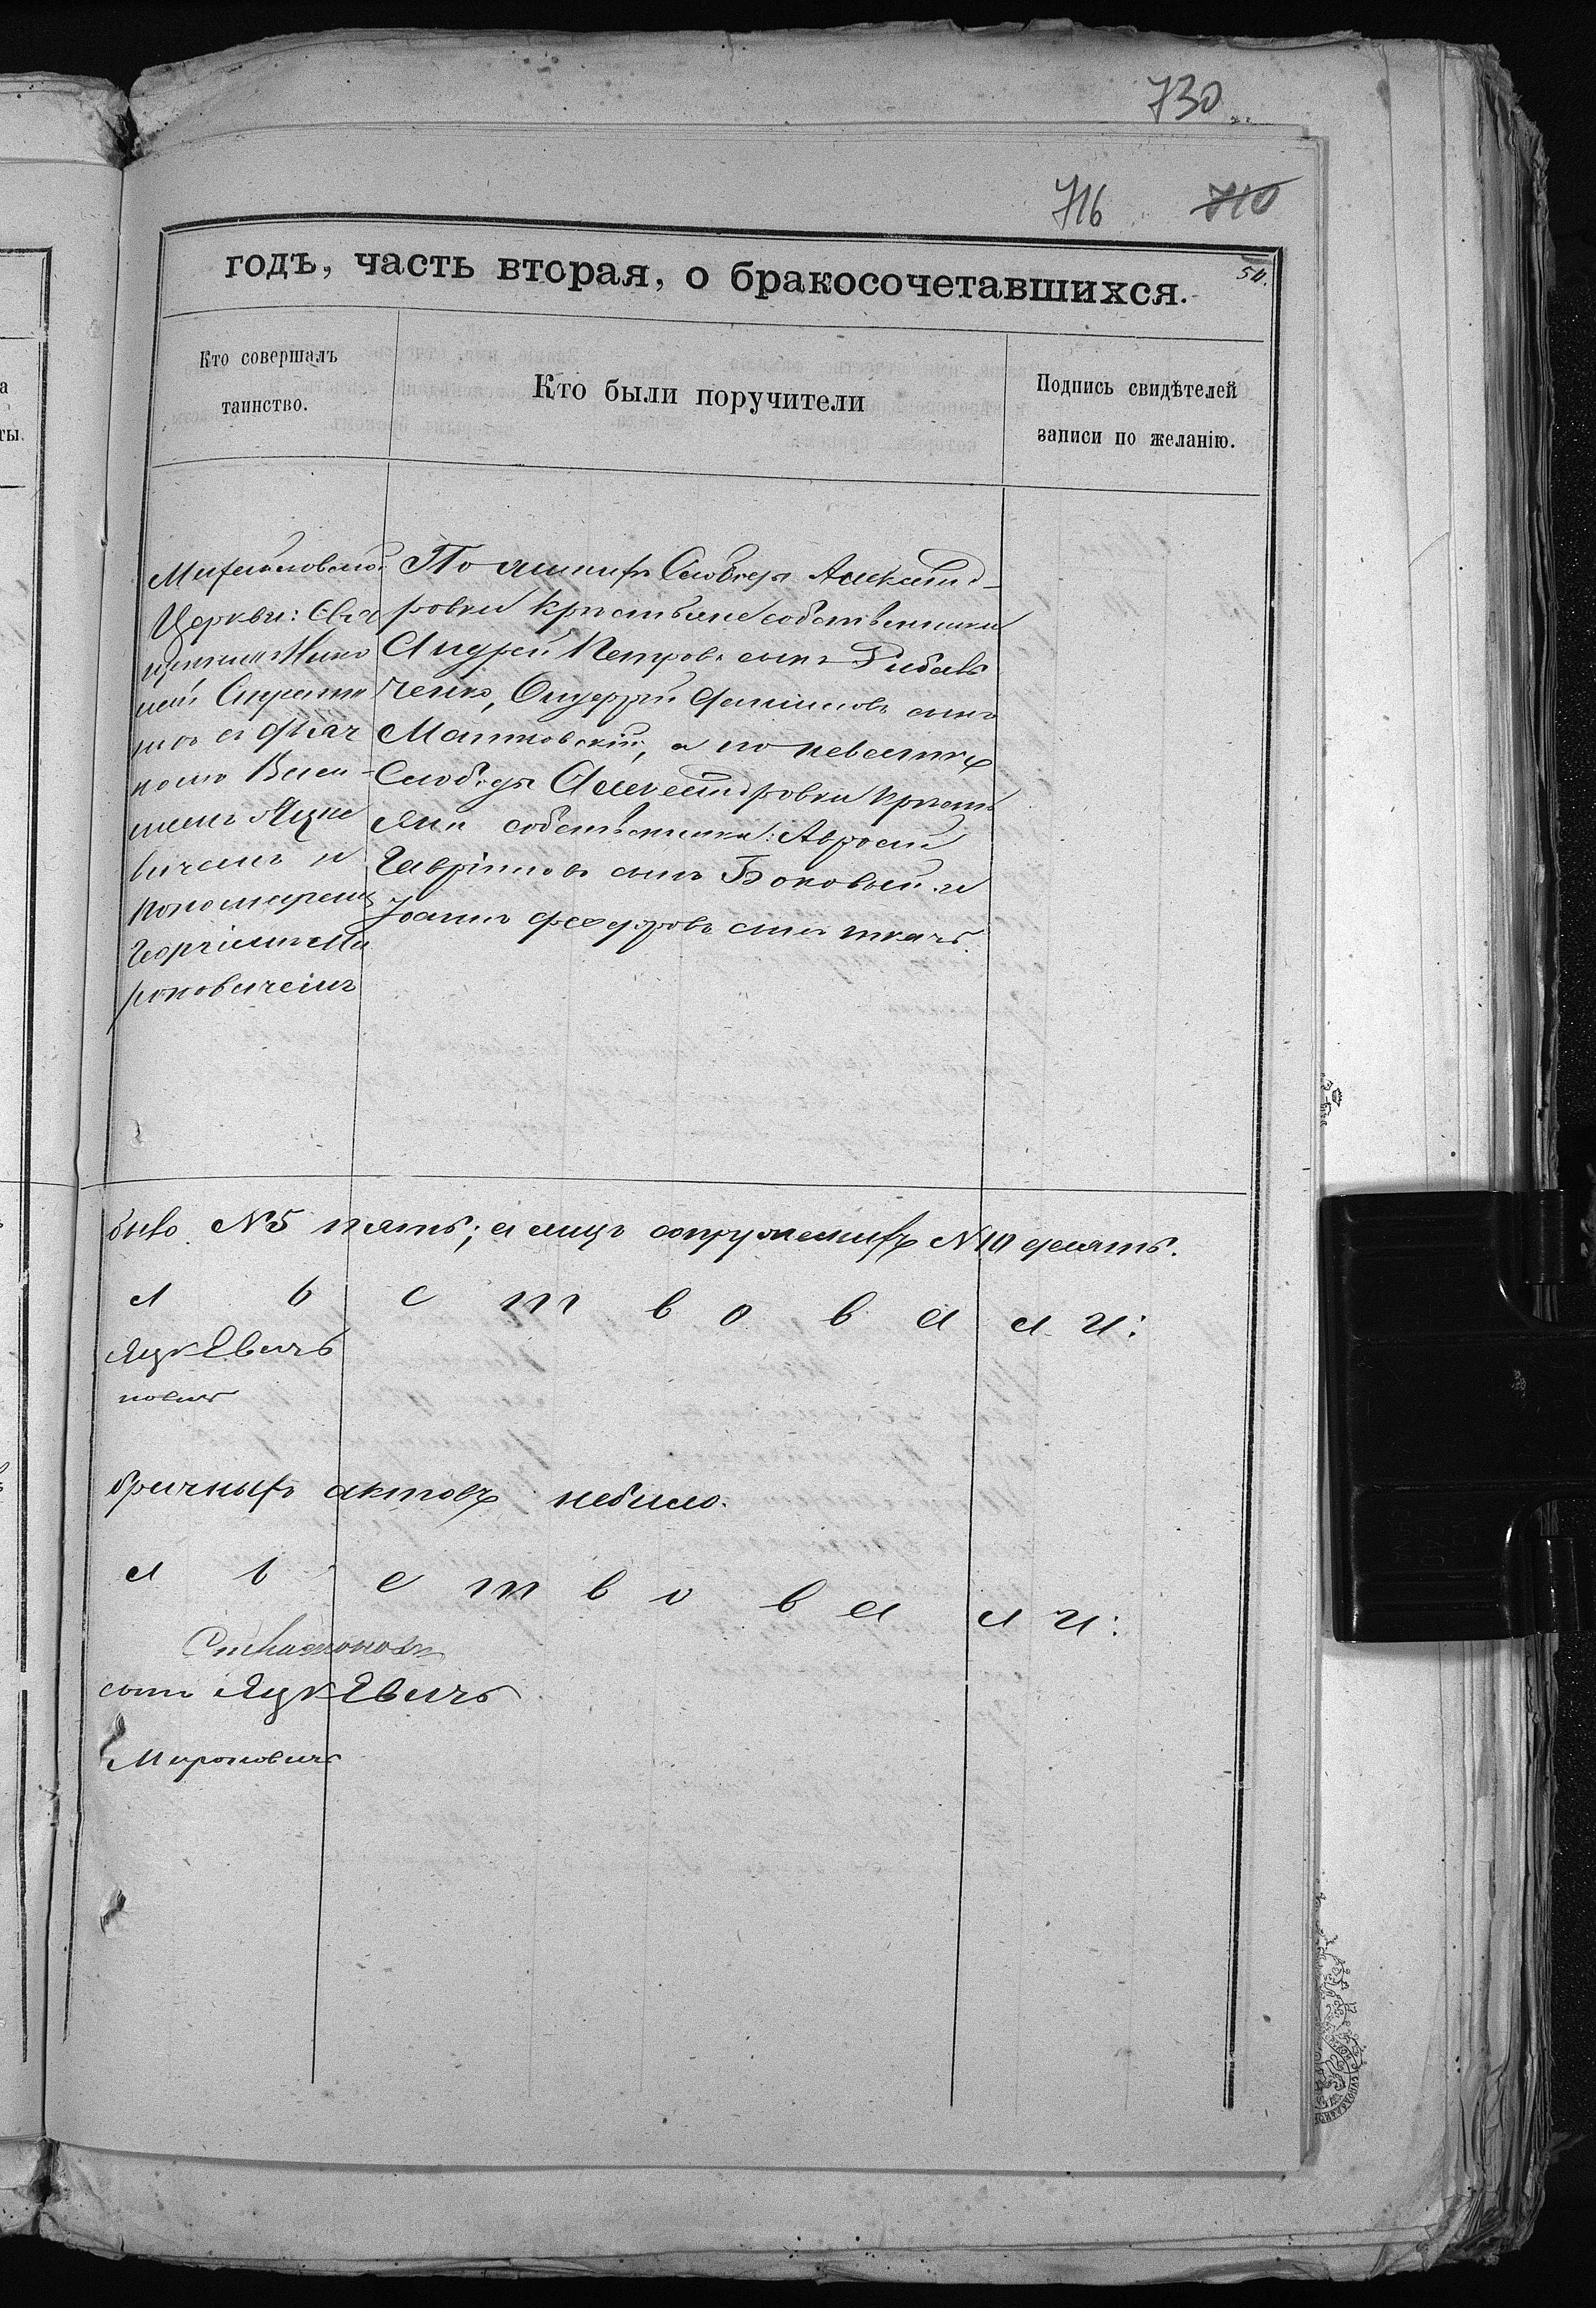 730
716 710
годъ, часть вторая, о бракосочетавшихся.
54.
Кто совершалъ
таинство.
Кто были поручители
Подпись свидѣтелей
записи по желанію.
Михайловской
Церкви: Свя
щенник Нико
лай
съ Дьяч
комъ Васи-
лиемъ Яцке
вичемъ и
Пономаремъ
Георгіемъ Ми
роновичемъ
По женихѣ Слободы Александ-
ровки крестьяне собственники
Андрей Петровъ сынъ Рибаль
ченко, Андрей сынъ
а по невестѣ
Слободы Александровки кресть
яни собственники:
Гавріиловъ сынъ Боковый и
Іоаннъ Феодоровъ сынъ Ткачъ.
было N5 пять; а лицъ сопружескихъ N10 десять.
л ь с т в о в а л и:
Яцкевичъ
новичъ
брачныхъ актовъ небыло.
л ь с т в о в а л и:
сынъ Яцкевичъ
Мироновичъ